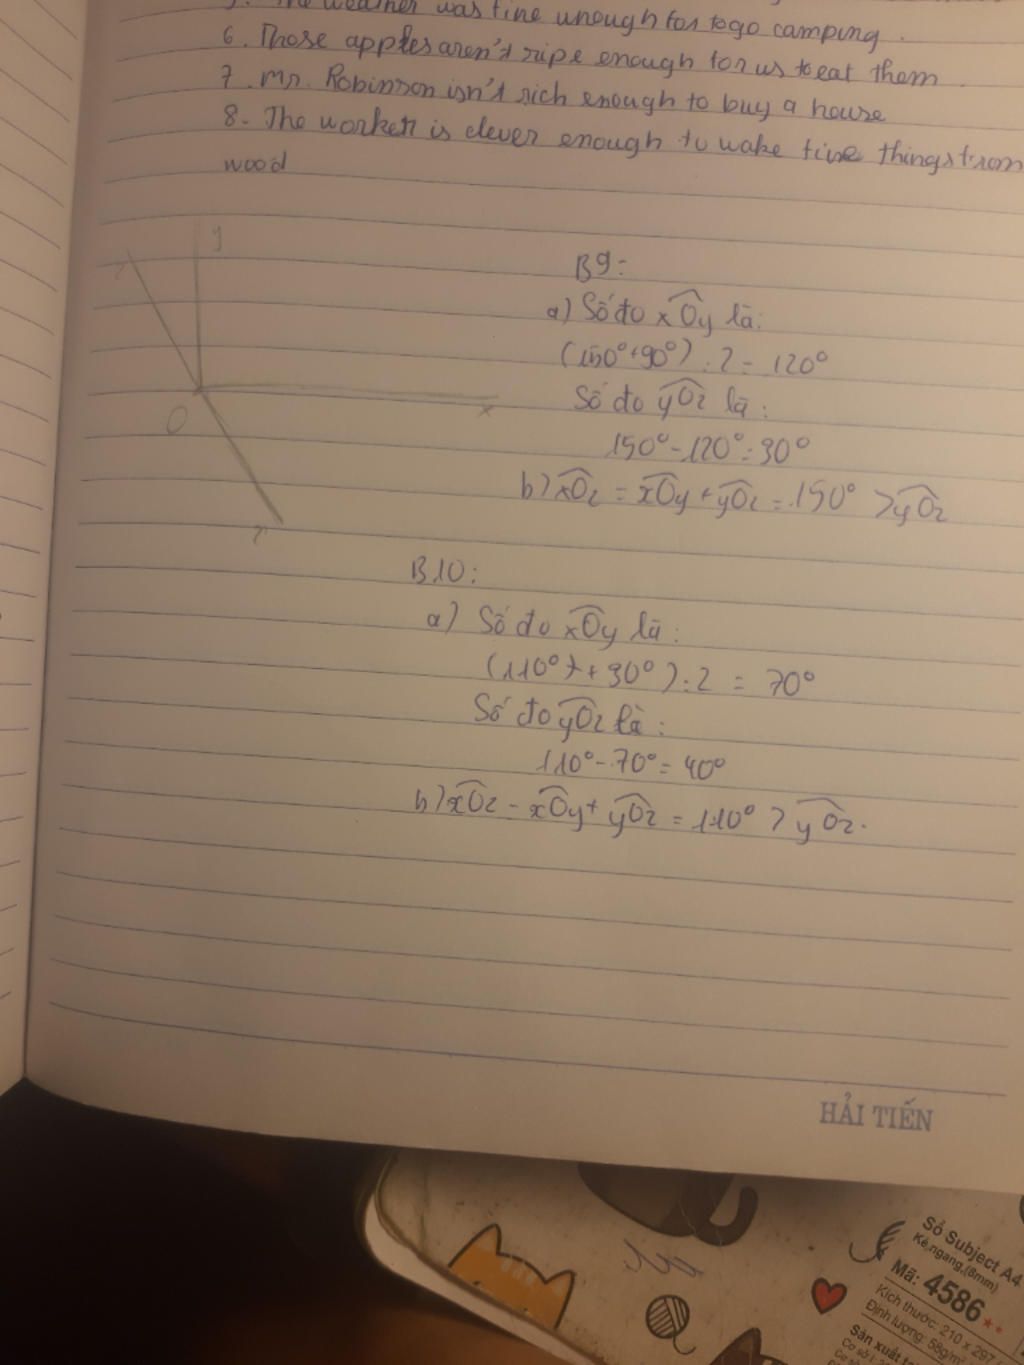 5. The weather was fine unough for to go camping.
6. Those apples aren't ripe enough for us to eat them
7. Mr. Robinson isn't rich enough to buy a house
8. The worker is clever enough to wake fine things from
wood
y
x
O
z
B9:
a) Số đo xOy là:
(150° + 90°) : 2 = 120°
Số đo yOz là:
150° - 120° = 30°
b) xOz = xOy + yOz = 150° > yOz
B10:
a) Số đo xOy là:
(110° + 30°) : 2 = 70°
Số đo yOz là:
110° - 70° = 40°
b) xOz = xOy + yOz = 110° > yOz.
HẢI TIẾN
Sổ Subject A4
Kẻ ngang (8mm)
Mã: 4586
Kích thước: 210 x 297
Định lượng: 58g/m
Sản xuất